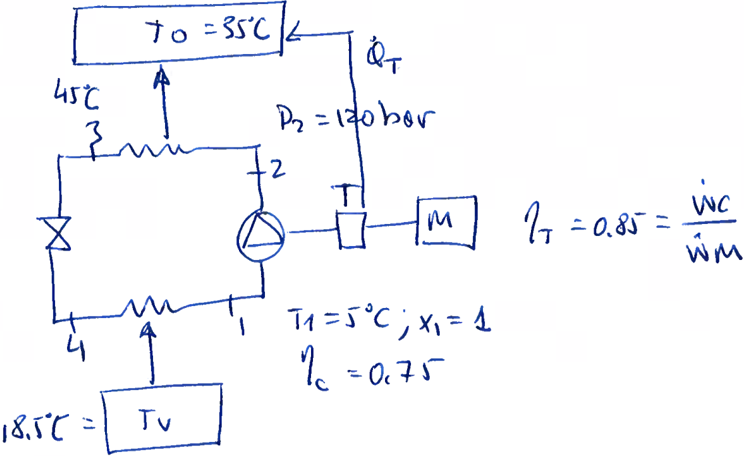 To = 35°C
Q̇T
45°C
P2 = 120 bar
3
2
T
M
ηT = 0.85 = ẇc / ẇM
1
T1 = 5°C ; x1 = 1
4
ηc = 0.75
18.5°C = Tv